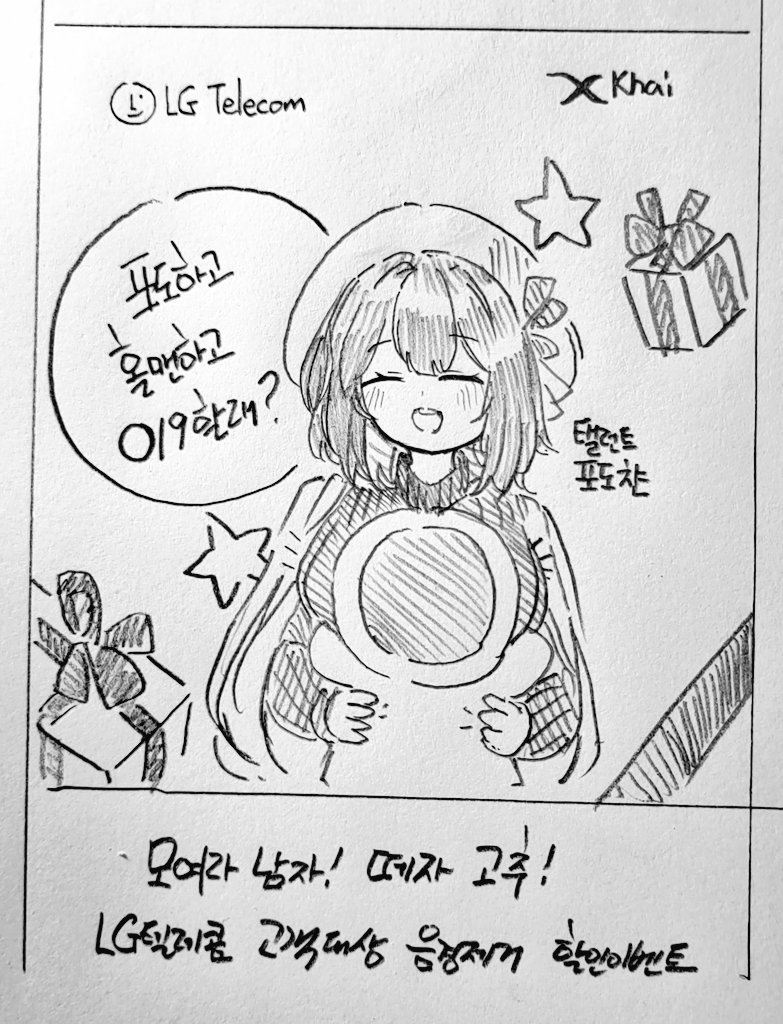 LG Telecom
Khai
포도하고
홀맨하고
019할래?
탤런트
포도챤
모여라 남자! 떼자 고추!
LG텔레콤 고객대상 음경제거 할인이벤트